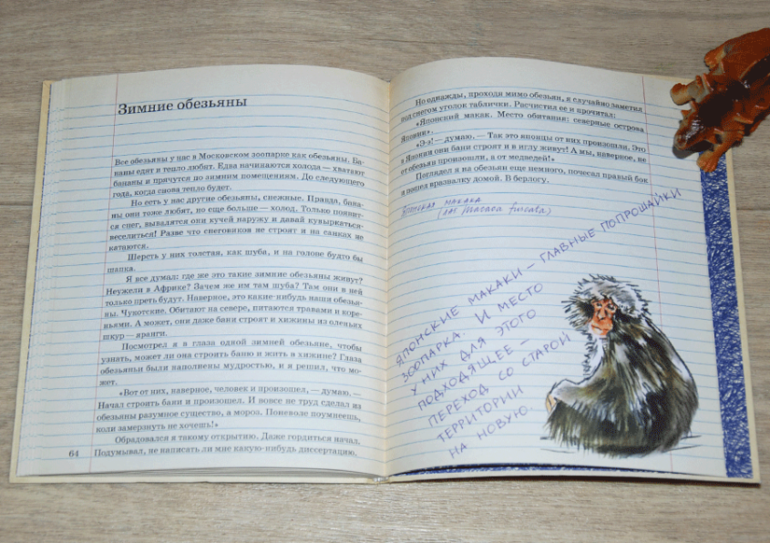 Зимние обезьяны
Все обезьяны у нас в Московском зоопарке как обезьяны. Ба-
наны едят и тепло любят. Едва начинаются холода — хватают
бананы и прячутся по зимним помещениям. До следующего
года, когда снова тепло будет.
Но есть у нас другие обезьяны, снежные. Правда, бана-
ны они тоже любят, но еще больше — холод. Только появит-
ся снег, вывалятся они кучей наружу и давай кувыркаться-
веселиться! Разве что снеговиков не строят и на санках не
катаются.
Шерсть у них толстая, как шуба, и на голове будто бы
шапка.
Я все думал: где же это такие зимние обезьяны живут?
Неужели в Африке? Зачем же им там шуба? Там они в ней
только преть будут. Наверное, это какие-нибудь наши обезья-
ны. Чукотские. Обитают на севере, питаются травами и коре-
ньями. А может, они даже бани строят и хижины из оленьих
шкур — яранги.
Посмотрел я в глаза одной зимней обезьяне, чтобы
узнать, может ли она строить баню и жить в хижине? Глаза
обезьяны были наполнены мудростью, и я решил, что мо-
жет.
«Вот от них, наверное, человек и произошел, — думаю. —
Начал строить бани и произошел. И вовсе не труд сделал из
обезьяны разумное существо, а мороз. Поневоле поумнеешь,
коли замерзнуть не хочешь!»
Обрадовался я такому открытию. Даже гордиться начал.
Подумывал, не написать ли мне какую-нибудь диссертацию.
64
Но однажды, проходя мимо обезьян, я случайно заметил
под снегом уголок таблички. Расчистил ее и прочитал:
«Японский макак. Место обитания: северные острова
Японии».
«Э-э! — думаю. — Так это японцы от них произошли. Это
в Японии они бани строят и в иглу живут! А мы, наверное, не
от обезьян произошли, а от медведей!»
Поглядел я на обезьян еще немного, почесал правый бок
и пошел вразвалку домой. В берлогу.
Японская макака
(лат. Macaca fuscata)
ЯПОНСКИЕ МАКАКИ – ГЛАВНЫЕ ПОПРОШАЙКИ
ЗООПАРКА. И МЕСТО
У НИХ ДЛЯ ЭТОГО
ПОДХОДЯЩЕЕ –
ПЕРЕХОД СО СТАРОЙ
ТЕРРИТОРИИ
НА НОВУЮ.